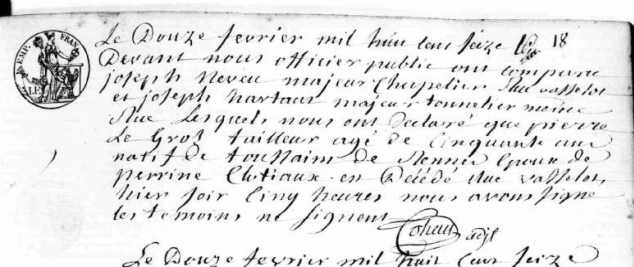 Le Douze fevrier mil huit cent seize 18
Devant nous officier public ont comparu
joseph Neveu majeur Chapelier Rue vasselot
et joseph hartaut majeur tonnelier meme
Rue Lesquels nous ont Declaré que pierre
Le Grot tailleur agé de Cinquante ans
natif de toussaint de Rennes Epoux de
perrine en Décédé Rue vasselot
hier soir Cinq heures nous avons signé
les temoins ne signent
adjt
Le Douze fevrier mil huit Cent seize